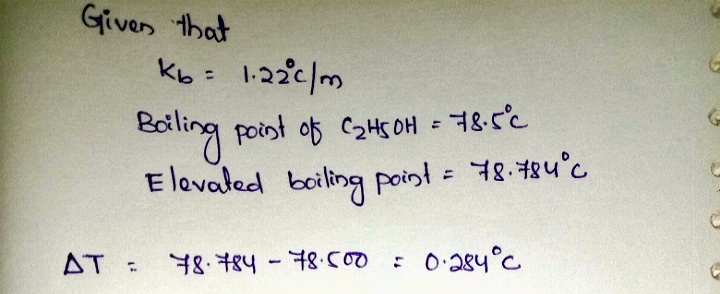 Given that
Kb = 1.22°C/m
Boiling point of C2H5OH = 78.5°C
Elevated boiling point = 78.784°C
ΔT = 78.784 - 78.500 = 0.284°C